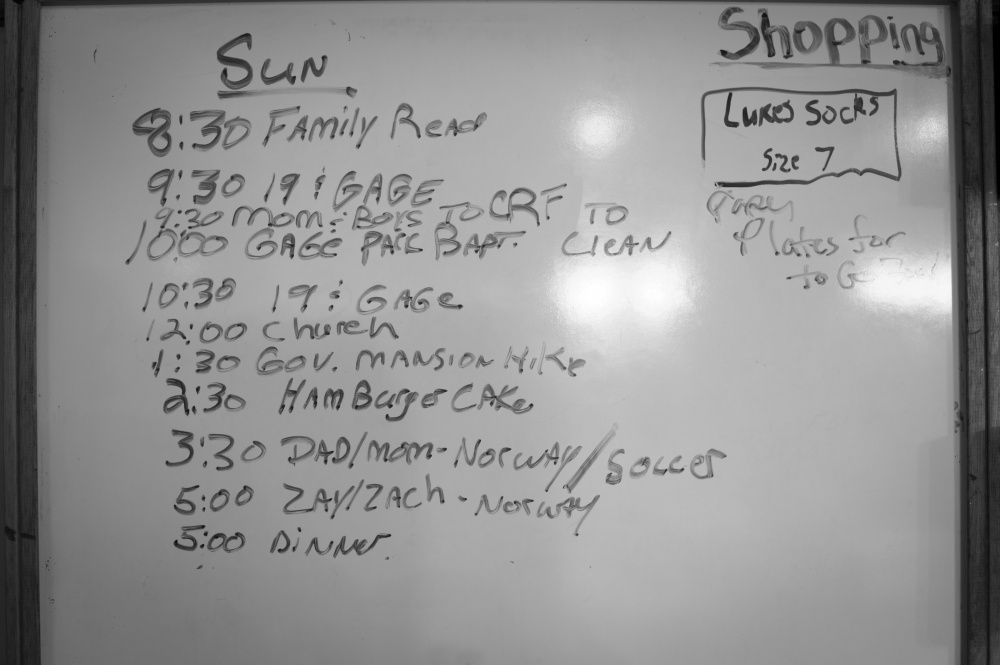 Sun
8:30 Family Read
9:30 19 & GAGE
9:30 Mom & Boys TO CRF TO CLEAN
10:00 GAGE BAPT.
10:30 19 & GAGE
12:00 Church
1:30 GOV. MANSION Hike
2:30 HAMBurger CAKe
3:30 DAD/mom - NorwAY/Soccer
5:00 ZAY/ZAch - NorwAY
5:00 DiNNer
Shopping
Lukes Socks
Size 7
Plates for
to Go